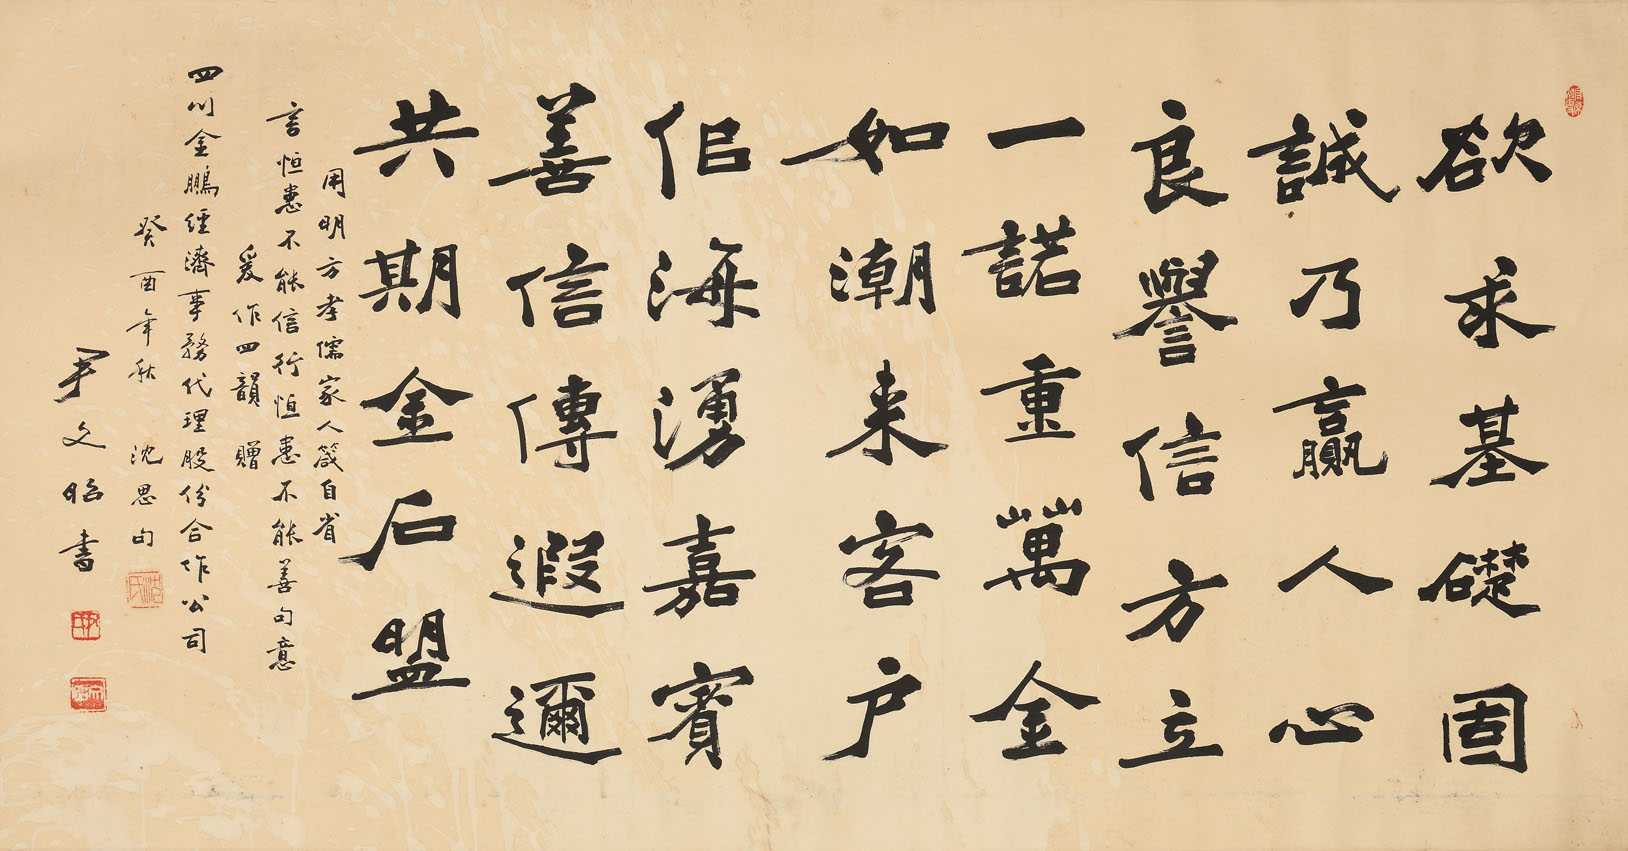 欲求基礎固
誠乃贏人心
良譽信方立
一諾重萬金
如潮来客户
佀海湧嘉賓
善信傳遐邇
共期金石盟
用明方孝儒家人箴自省
言恒患不能信行恒患不能善句意
爰作四韻 贈
四川金鵬經濟事務代理股份合作公司
癸酉年秋 沈思句
沈氏
尹文昭書